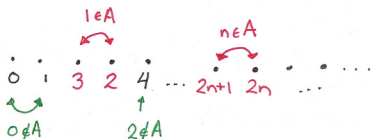 1∈A n∈A
0 1 3 2 4 ... 2n+1 2n ... ...
0∉A 2∉A